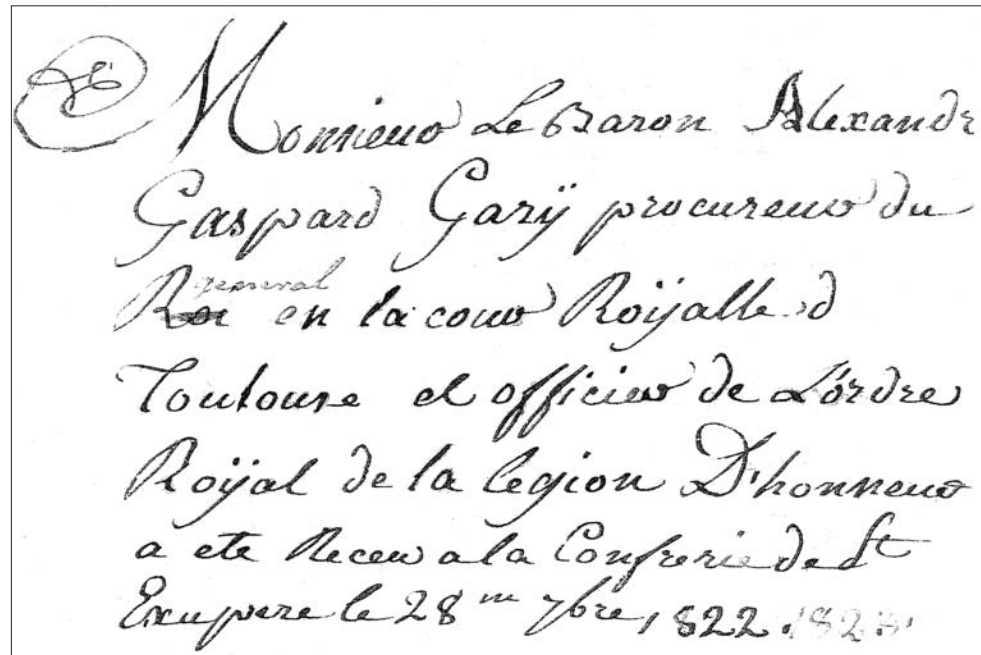 Monsieur Le Baron Alexandr
Gaspard Garÿ procureur du
general
Roi en la cour Roÿalle d
Toulouse et officier de L'ordre
Roÿal de la legion D'honneur
a ete Receu a la Confrerie de St
Exupere le 28me 7bre, 1822. 1823.